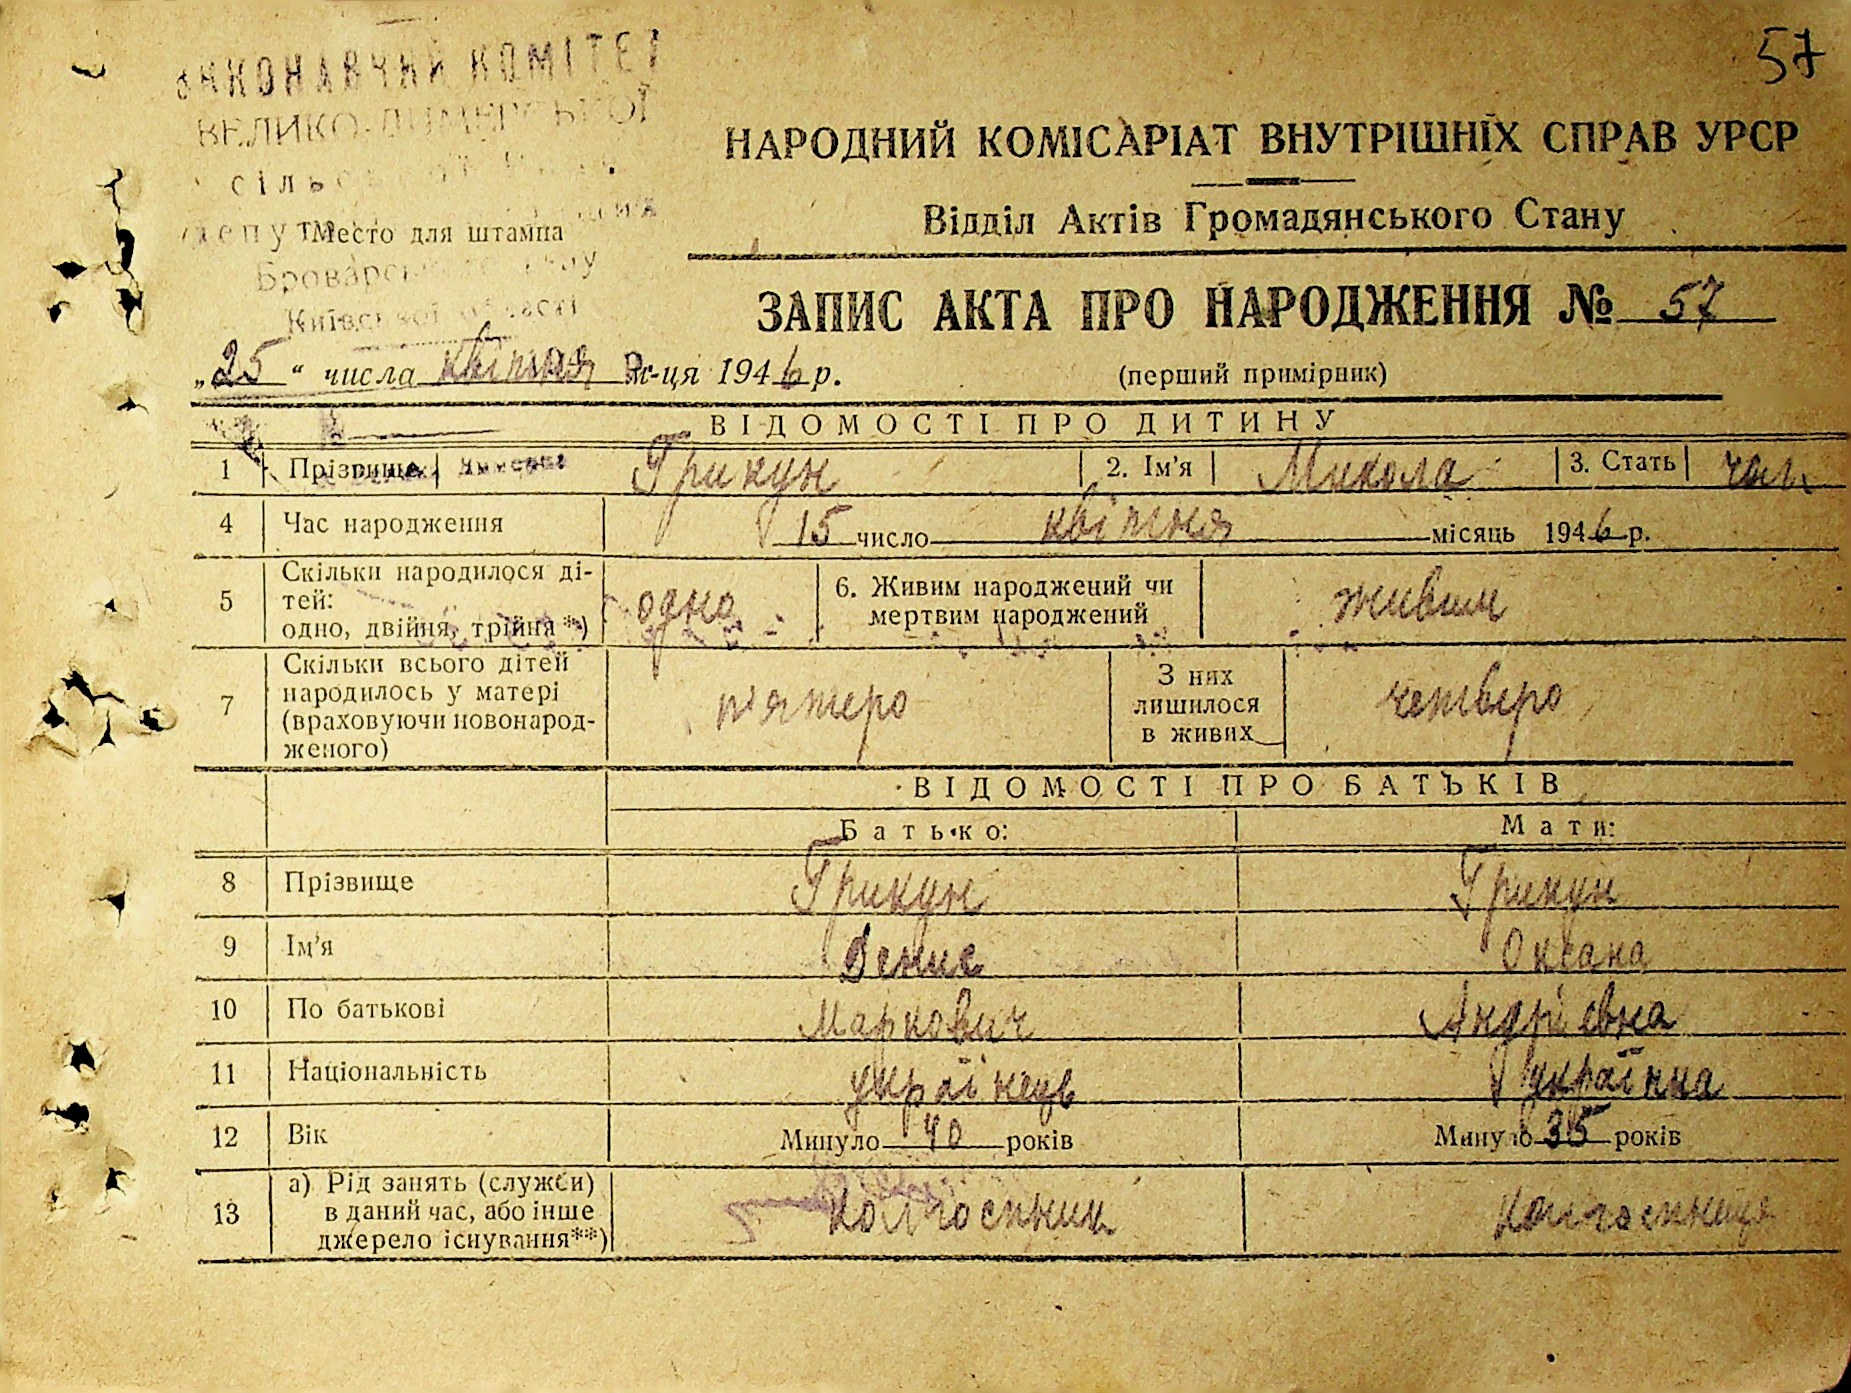 57
ВИКОНАВЧИЙ КОМІТЕТ
ВЕЛИКО-ДИМЕРСЬКОЇ
сільс
депут
Место для штампа
Броварс
Київської області
НАРОДНИЙ КОМІСАРІАТ ВНУТРІШНІХ СПРАВ УРСР
Відділ Актів Громадянського Стану
ЗАПИС АКТА ПРО НАРОДЖЕННЯ № 57
„25“ числа квітня м-ця 1946 р.
(перший примірник)
ВІДОМОСТІ ПРО ДИТИНУ
1 Прізвище Грикун 2. Ім'я Микола 3. Стать чол.
4 Час народження 15 число квітня місяць 1946 р.
5 Скільки народилося ді-
тей:
одно, двійня, трійня*) одно 6. Живим народжений чи
мертвим народжений живим
7 Скільки всього дітей
народилось у матері
(враховуючи новонарод-
женого) п'ятеро З них
лишилося
в живих четверо
ВІДОМОСТІ ПРО БАТЬКІВ
Батько: Мати:
8 Прізвище Грикун Грикун
9 Ім'я Денис Оксана
10 По батькові Маркович Андріевна
11 Національність українець українка
12 Вік Минуло 40 років Минуло 35 років
13 а) Рід занять (служби)
в даний час, або інше
джерело існування**) колгоспник колгоспниця